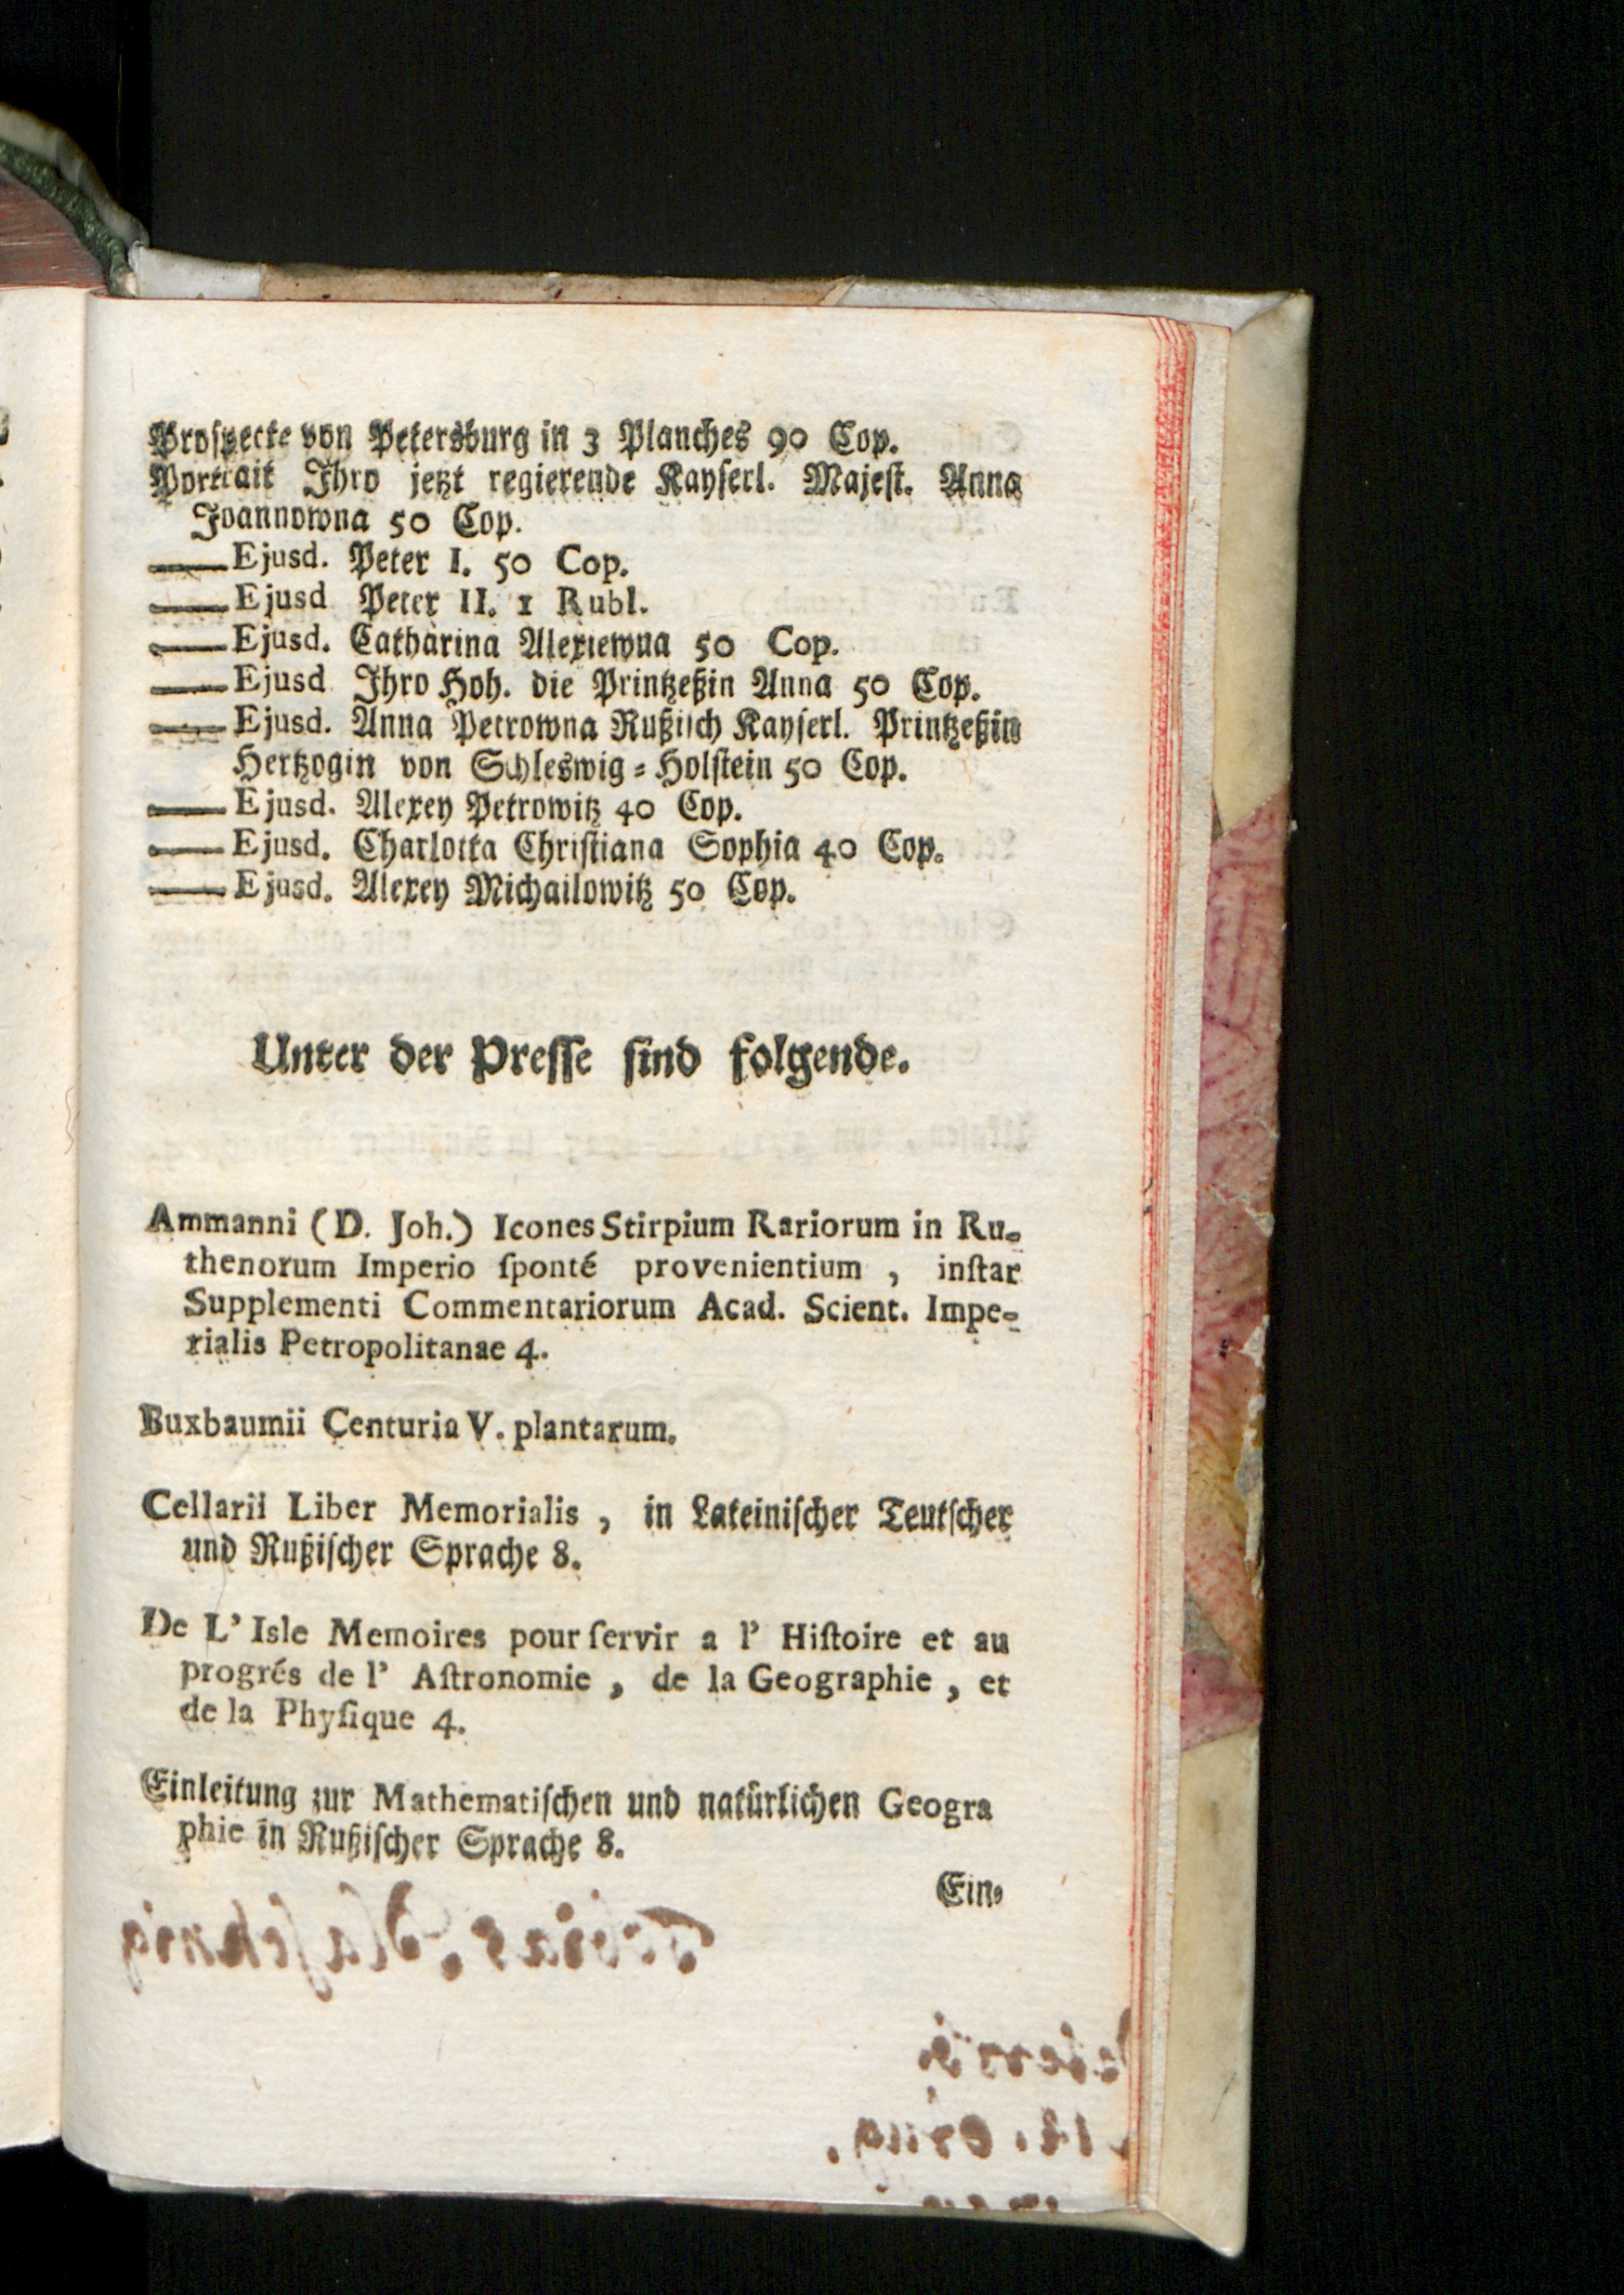 Prospecte von Petersburg in 3 Planches 90 Cop.
Portrait Ihro jetzt regierende Kayserl. Majest. Anna
Joannowna 50 Cop.
—— Ejusd. Peter I. 50 Cop.
—— Ejusd Peter II. 1 Rubl.
—— Ejusd. Catharina Alexiewna 50 Cop.
—— Ejusd Ihro Hoh. die Printzeßin Anna 50 Cop.
—— Ejusd. Anna Petrowna Rußisch Kayserl. Printzeßin
Hertzogin von Schleswig-Holstein 50 Cop.
—— Ejusd. Alexey Petrowitz 40 Cop.
—— Ejusd. Charlotta Christiana Sophia 40 Cop.
—— Ejusd. Alexey Michailowitz 50 Cop.
Unter der Presse sind folgende.
Ammanni (D. Joh.) Icones Stirpium Rariorum in Ru-
thenorum Imperio ſponté provenientium , inſtar
Supplementi Commentariorum Acad. Scient. Impe-
rialis Petropolitanae 4.
Buxbaumii Centuria V. plantarum.
Cellarii Liber Memorialis , in Lateinischer Teutscher
und Rußischer Sprache 8.
De L' Isle Memoires pour ſervir a l' Hiſtoire et au
progrés de l' Aſtronomie , de la Geographie , et
de la Phyſique 4.
Einleitung zur Mathematischen und natürlichen Geogra
phie in Rußischer Sprache 8.
Ein-